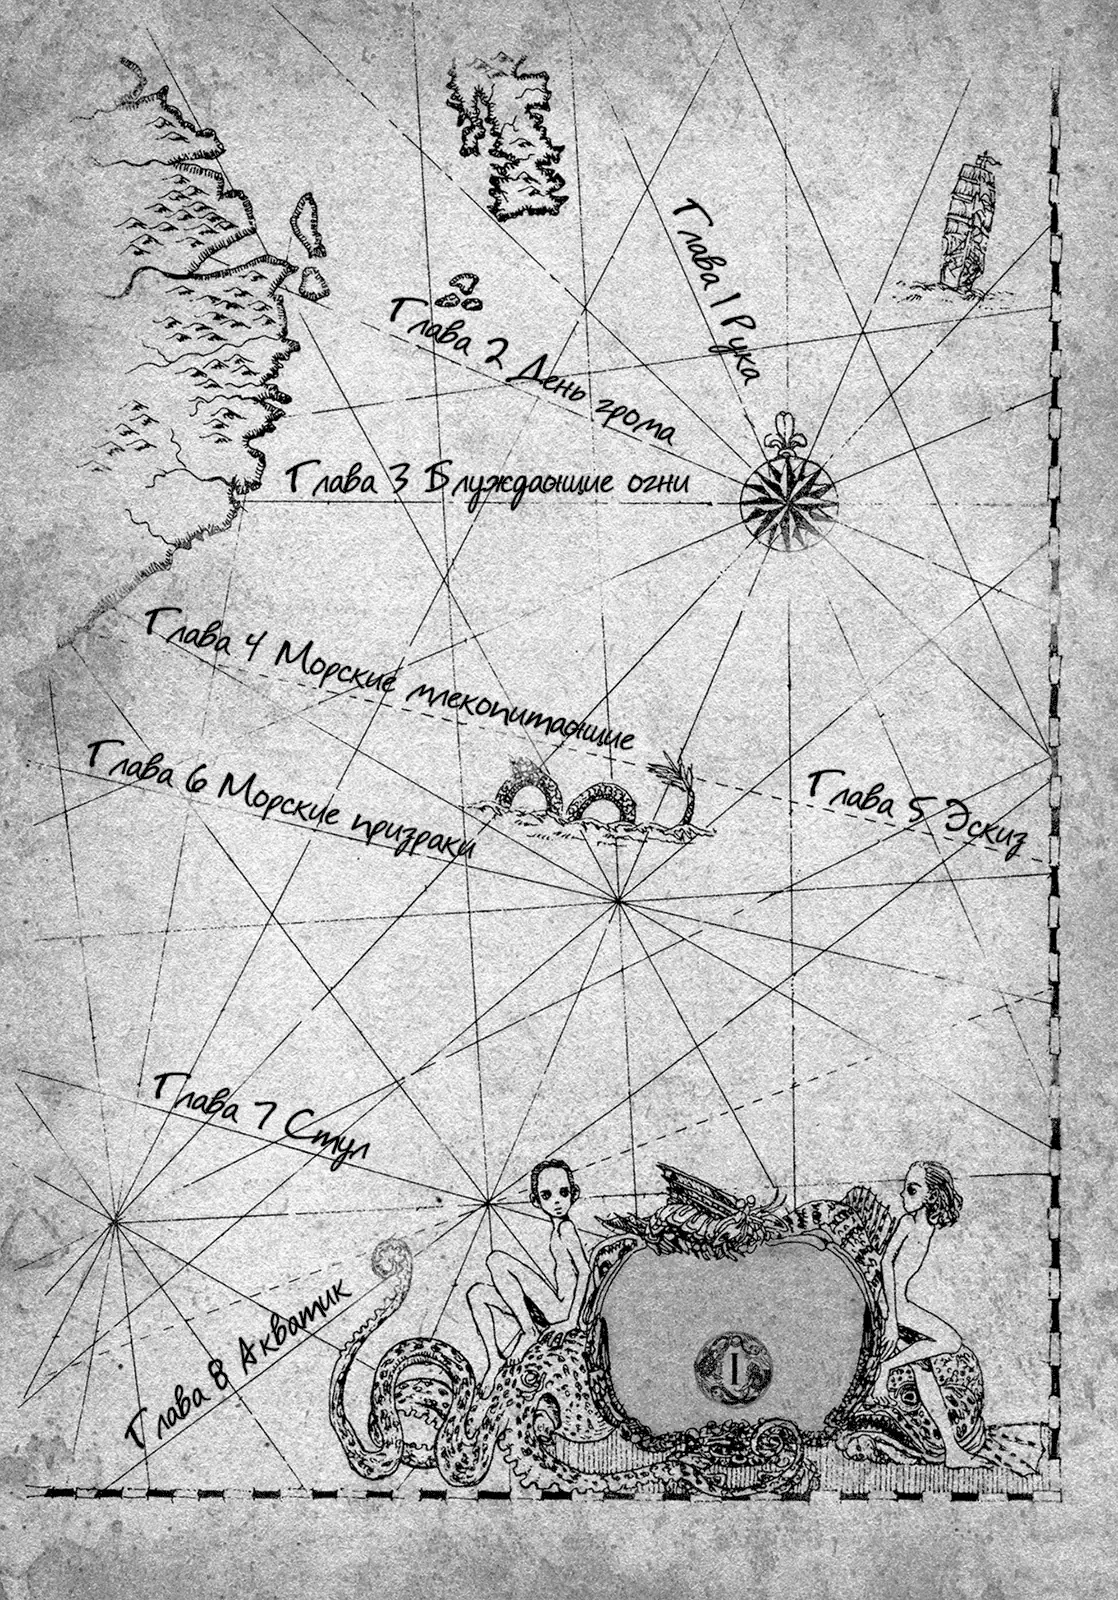 Глава 1 Рука
Глава 2 День грома
Глава 3 Блуждающие огни
Глава 4 Морские млекопитающие
Глава 5 Эскиз
Глава 6 Морские призраки
Глава 7 Стул
Глава 8 Акватик
I